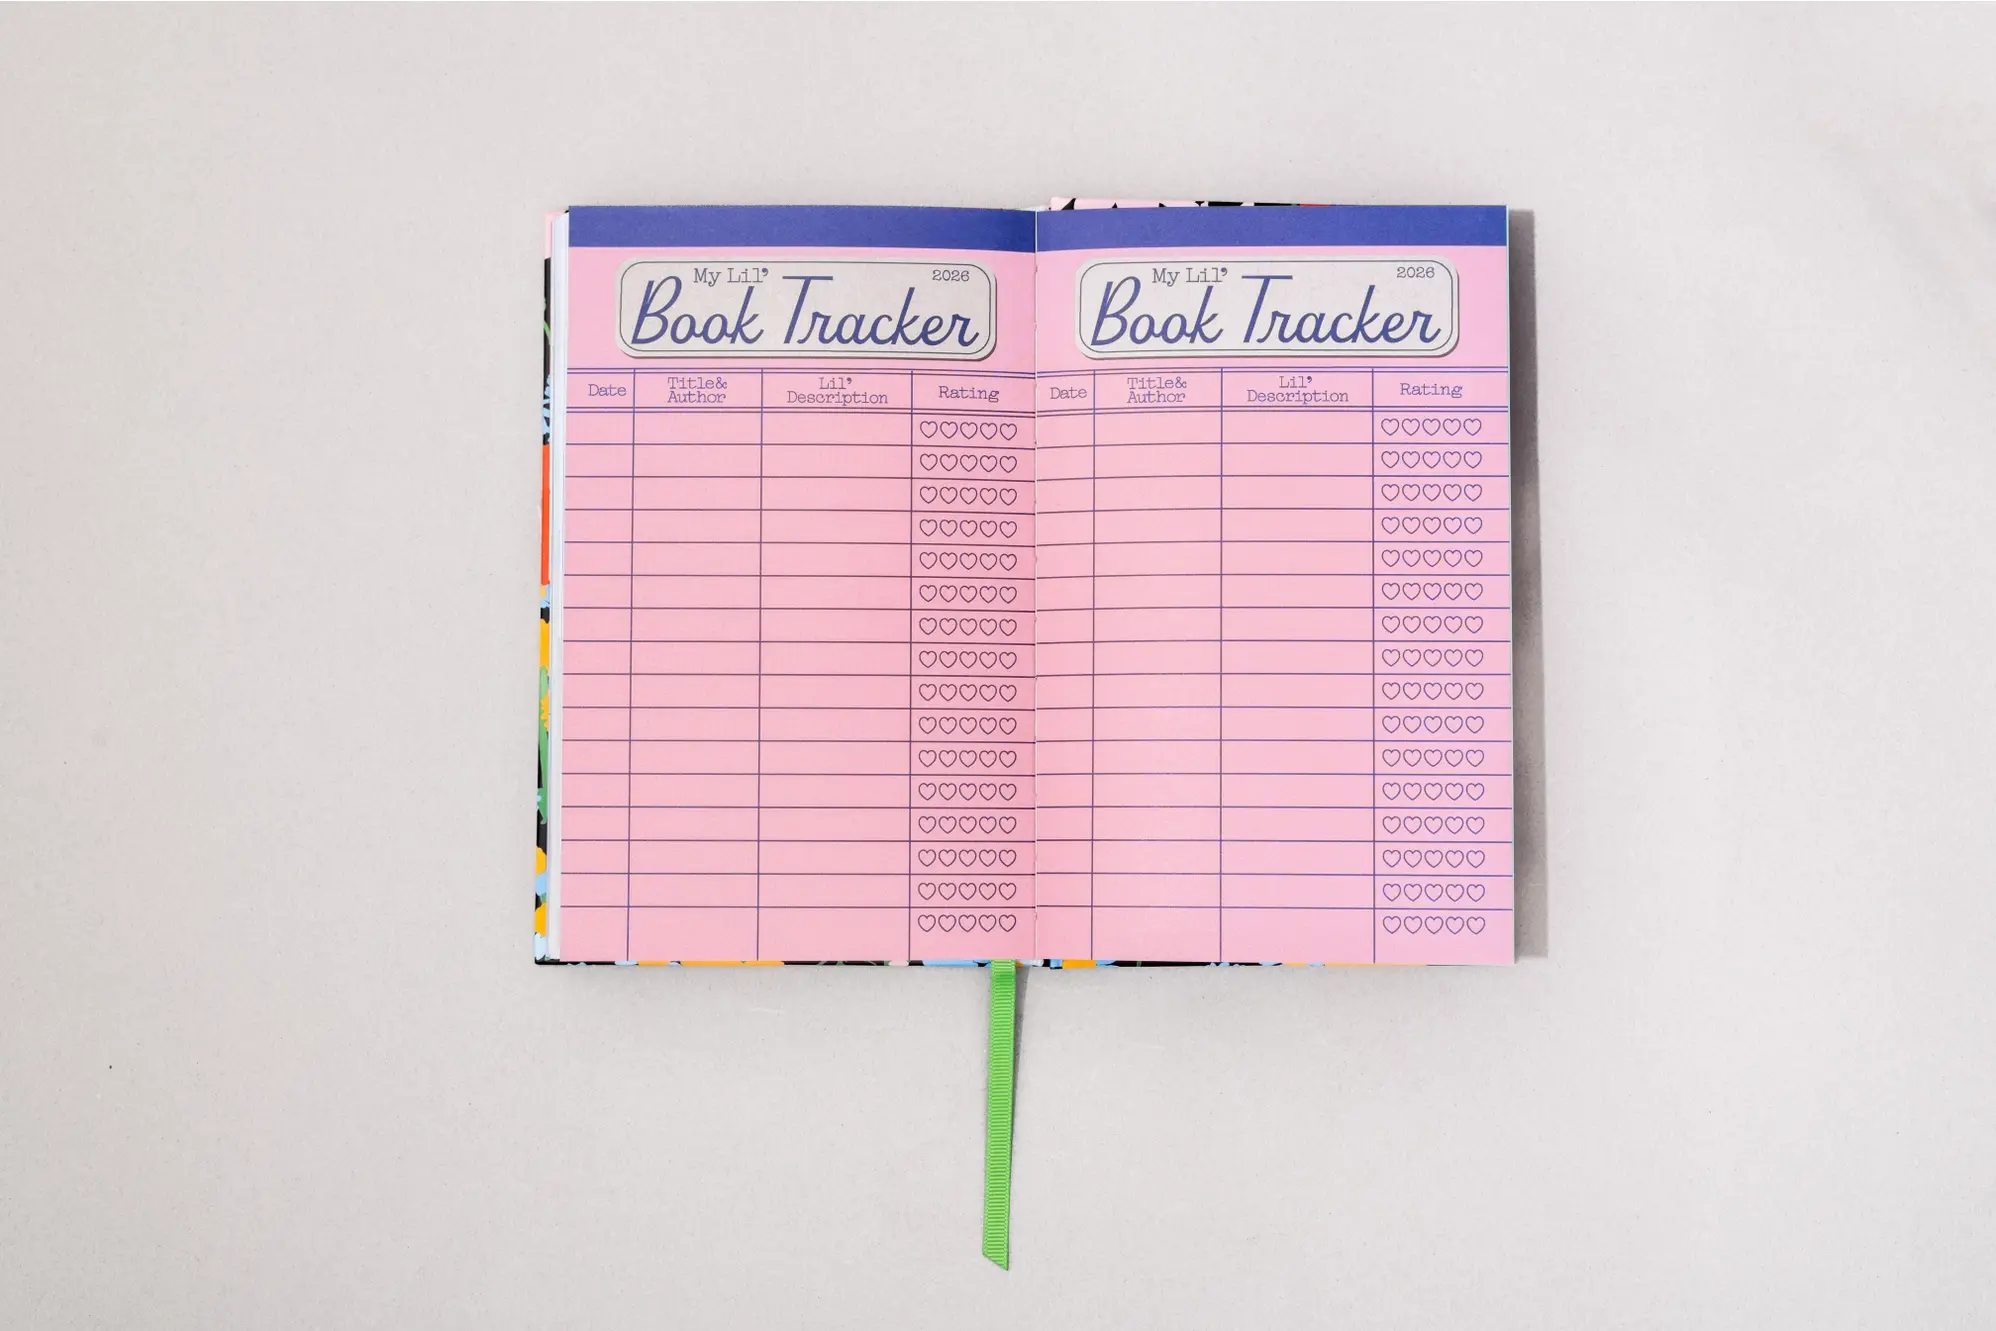 My Lil’ 2026
Book Tracker
Date Title& Author Lil’ Description Rating
My Lil’ 2026
Book Tracker
Date Title& Author Lil’ Description Rating